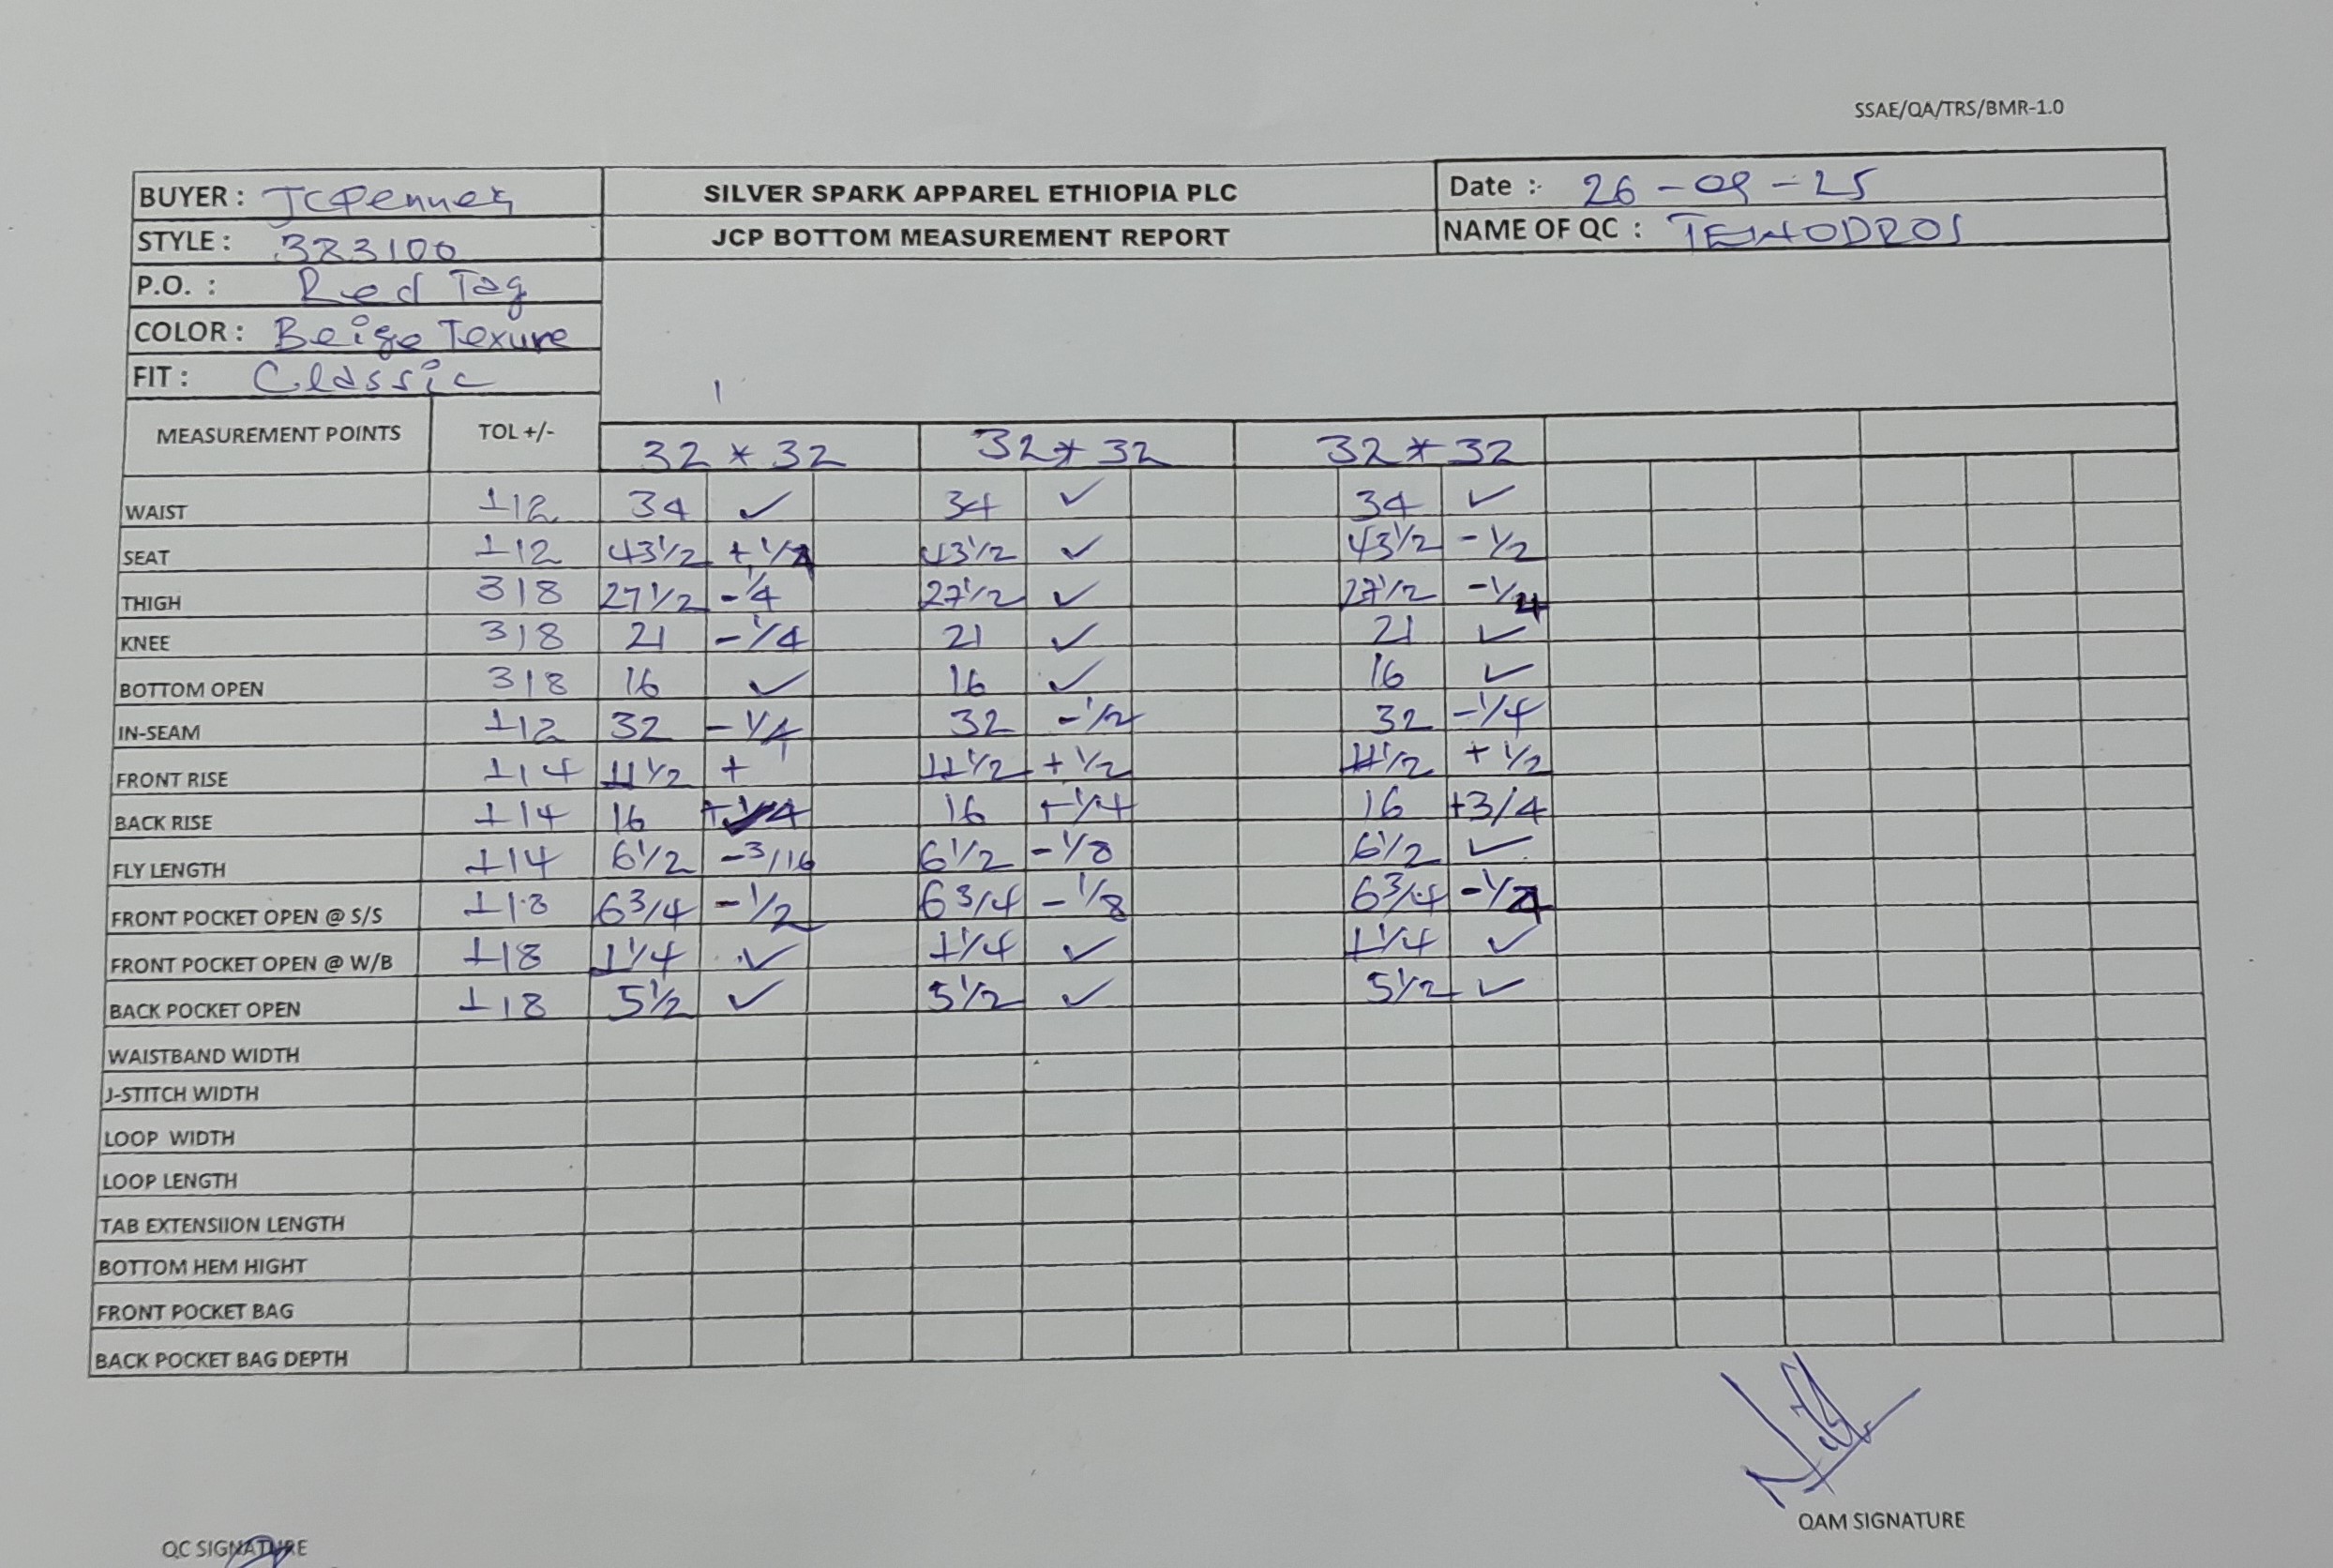 SSAE/QA/TRS/BMR-1.0
BUYER : JCPenney SILVER SPARK APPAREL ETHIOPIA PLC Date : 26-09-25
STYLE : 323100 JCP BOTTOM MEASUREMENT REPORT NAME OF QC : TEWODROS
P.O. : Red Tag
COLOR : Beige Texure
FIT : Classic
MEASUREMENT POINTS TOL +/- 32 * 32 32 * 32 32 * 32
WAIST 1/2 34 ✓ 34 ✓ 34 ✓
SEAT 1/2 43 1/2 43 1/2 ✓ 43 1/2 - 1/2
THIGH 3/8 27 1/2 - 1/4 27 1/2 ✓ 27 1/2 - 1/4
KNEE 3/8 21 - 1/4 21 ✓ 21 ✓
BOTTOM OPEN 3/8 16 ✓ 16 ✓ 16 ✓
IN-SEAM 1/2 32 - 1/4 32 - 1/2 32 - 1/4
FRONT RISE 1/4 11 1/2 + 1 11 1/2 + 1/2 11 1/2 + 1/2
BACK RISE 1/4 16 16 + 1/4 16 +3/4
FLY LENGTH 1/4 6 1/2 -3/16 6 1/2 - 1/8 6 1/2 ✓
FRONT POCKET OPEN @ S/S 1/8 6 3/4 - 1/2 6 3/4 - 1/8 6 3/4
FRONT POCKET OPEN @ W/B 1/8 1 1/4 ✓ 1 1/4 ✓ 1 1/4 ✓
BACK POCKET OPEN 1/8 5 1/2 ✓ 5 1/2 ✓ 5 1/2 ✓
WAISTBAND WIDTH
J-STITCH WIDTH
LOOP WIDTH
LOOP LENGTH
TAB EXTENSIION LENGTH
BOTTOM HEM HIGHT
FRONT POCKET BAG
BACK POCKET BAG DEPTH
QAM SIGNATURE
QC SIGNATURE